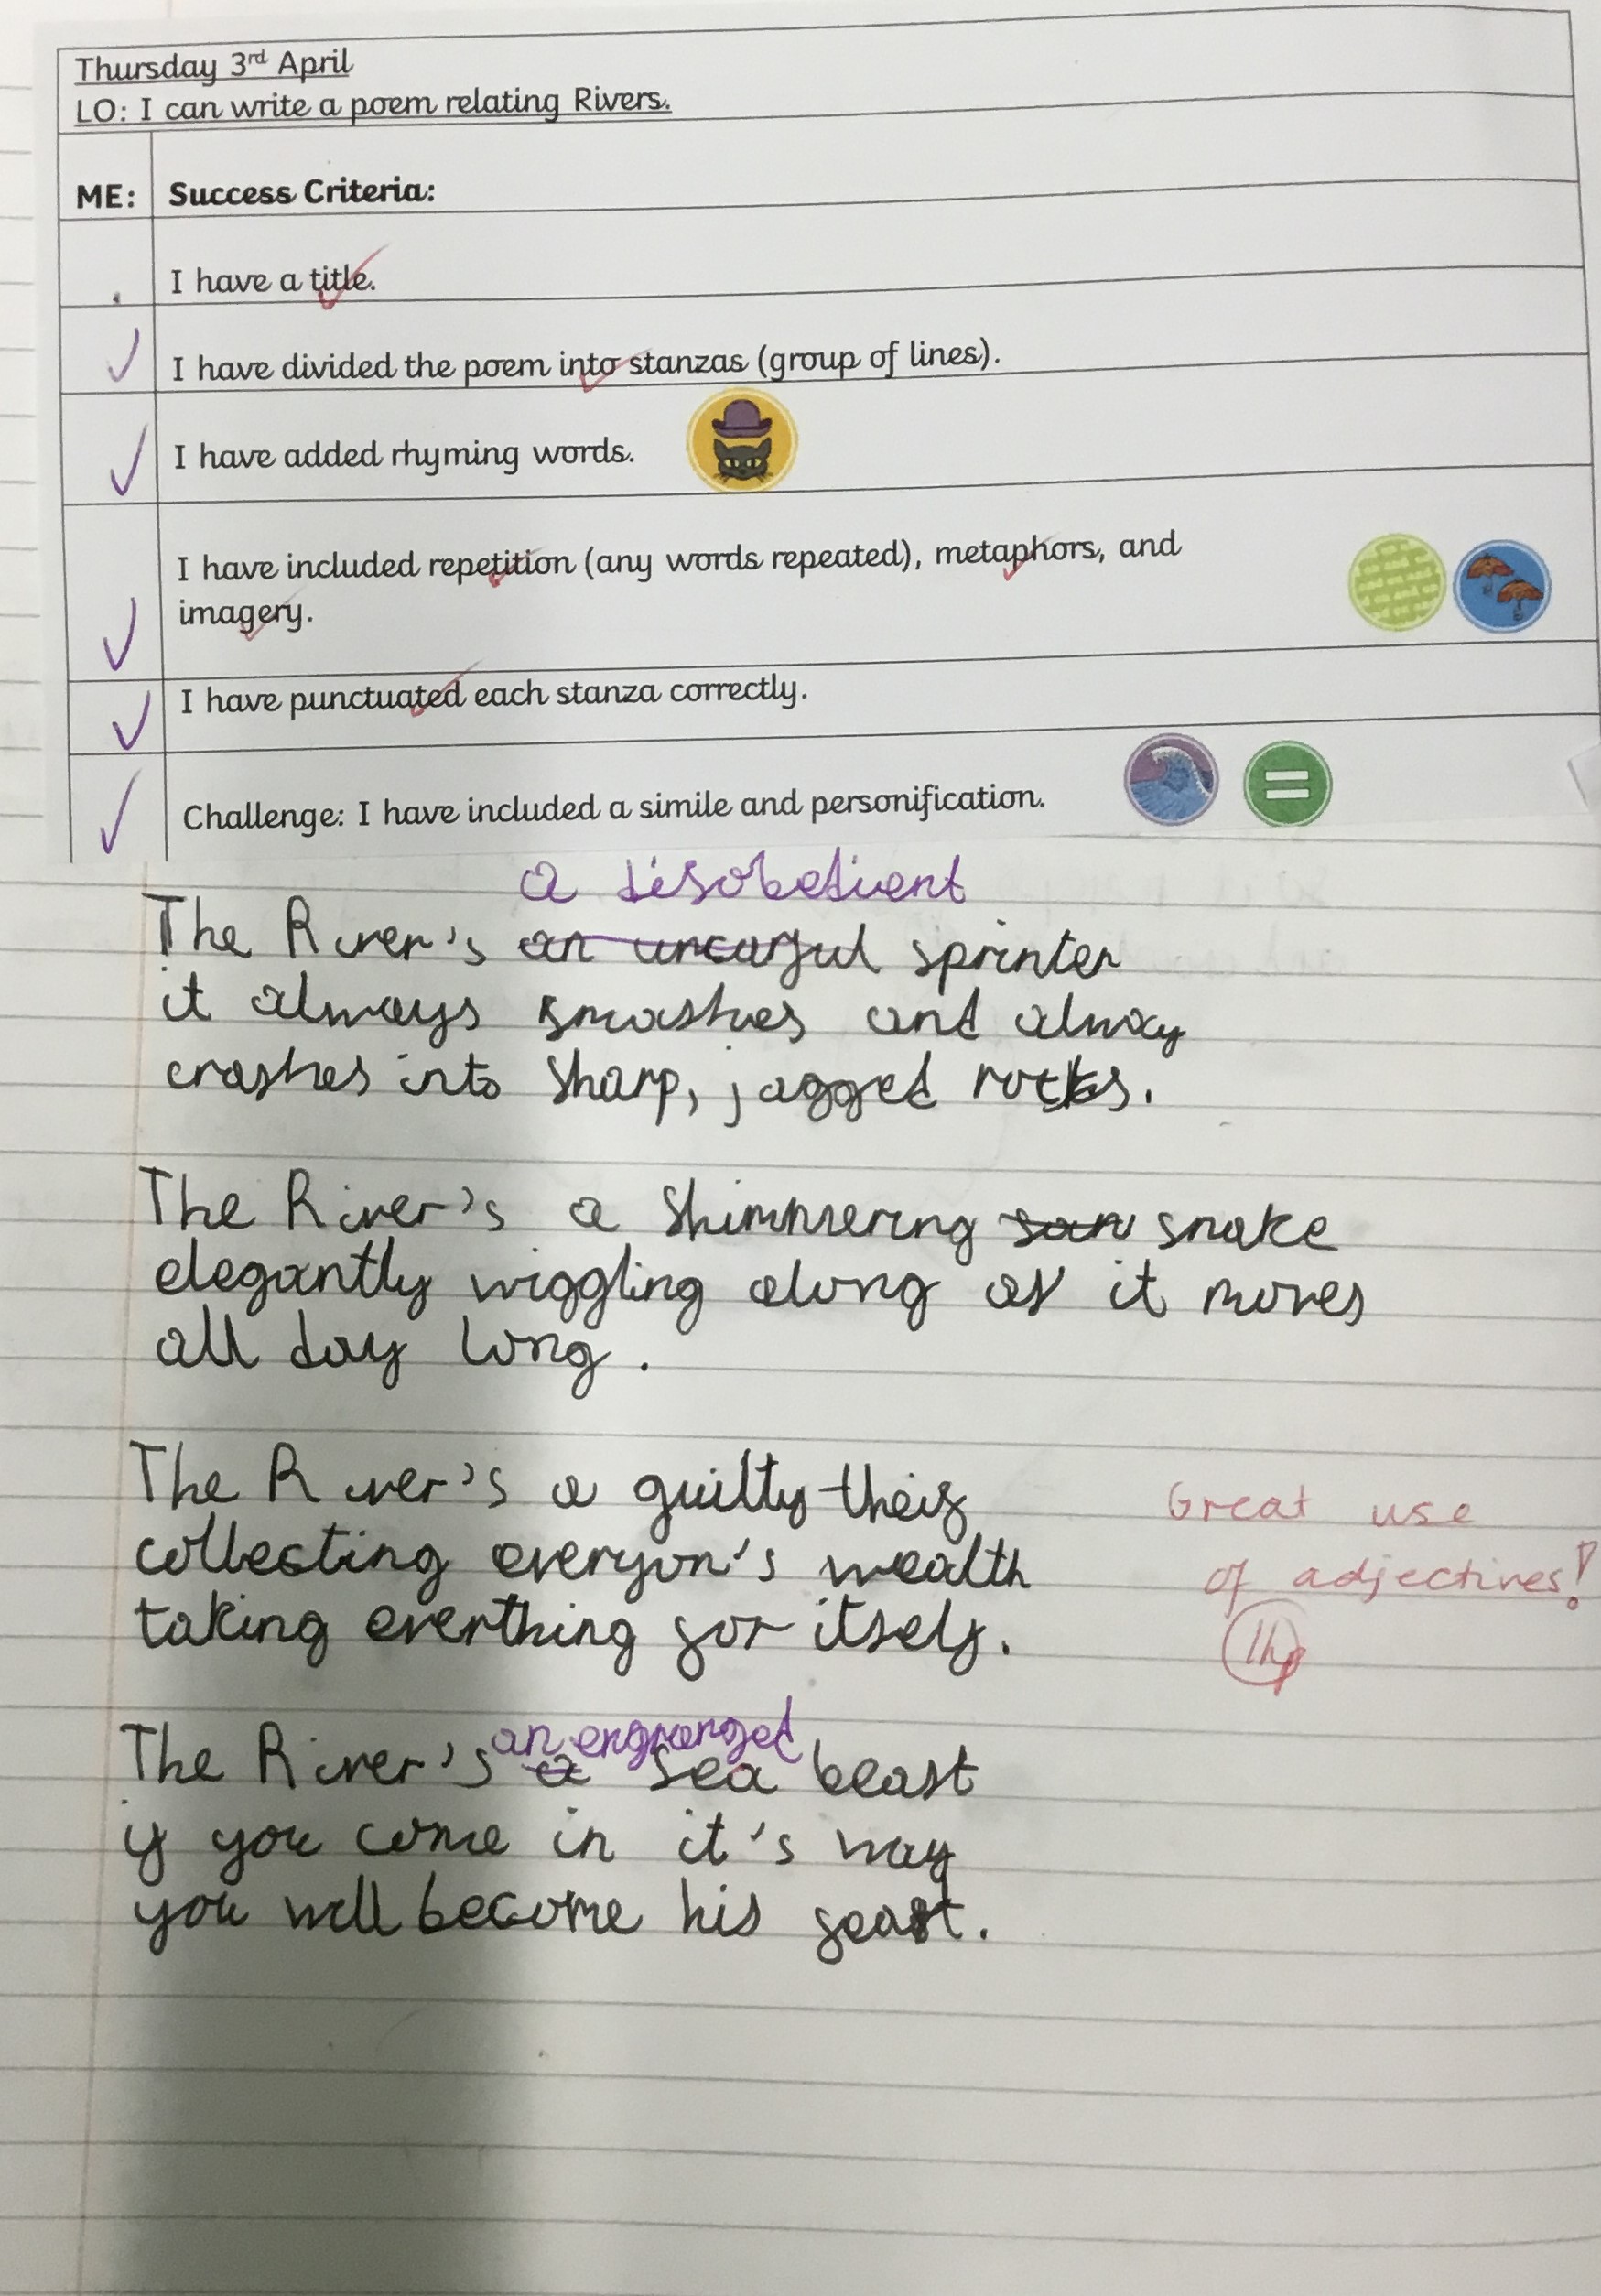 Thursday 3rd April
LO: I can write a poem relating Rivers.
ME: Success Criteria:
I have a title.
I have divided the poem into stanzas (group of lines).
I have added rhyming words.
I have included repetition (any words repeated), metaphors, and
imagery.
I have punctuated each stanza correctly.
Challenge: I have included a simile and personification.
a disobedient
The River's an uncarful sprinter
it always smashes and alway
crashes into sharp, jagged rocks.
The River's a shimmering snake
elegantly wiggling along as it moves
all day long.
The River's a guilty theif
collecting everyon's wealth
taking everthing for itself.
Great use
of adjectives!
an engranged
The River's a sea beast
if you come in it's way
you will become his feast.